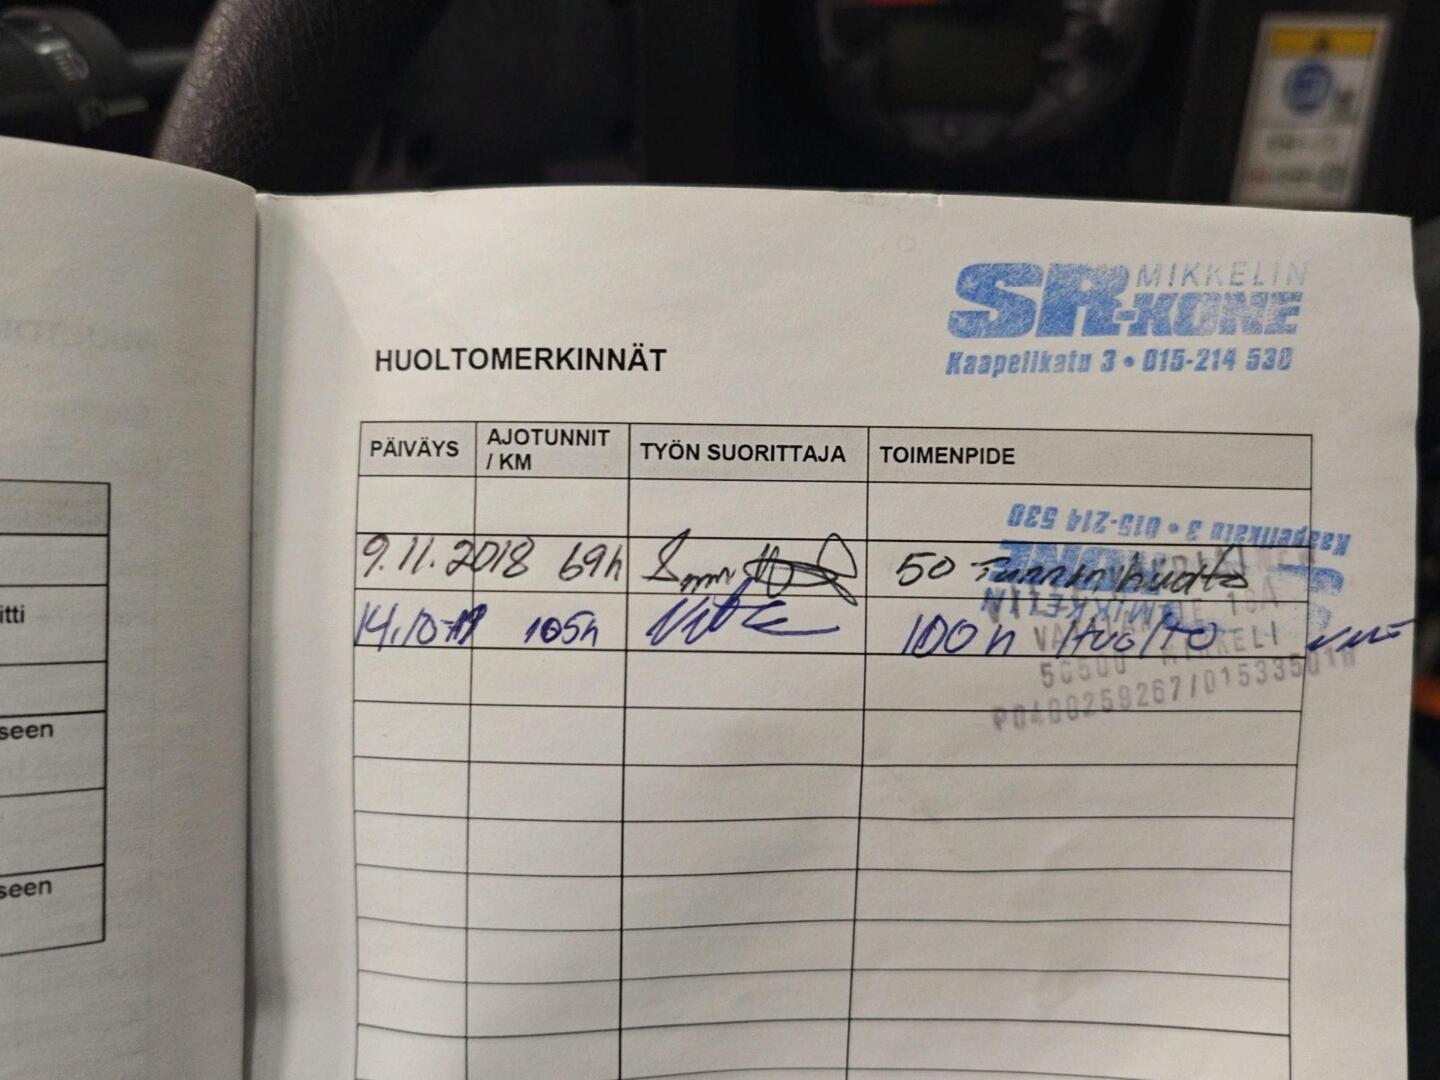 MIKKELIN
SR-KONE
Kaapelikatu 3 • 015-214 530
HUOLTOMERKINNÄT
PÄIVÄYS AJOTUNNIT / KM TYÖN SUORITTAJA TOIMENPIDE
Kaapelikatu 3 • 015-214 530
MIKKELIN
9.11.2018 69h 50 Tunnin huolto
14.10-19 105h 100 h Huolto
50500 MIKKELI
P0400259267/015335501
itti
seen
seen